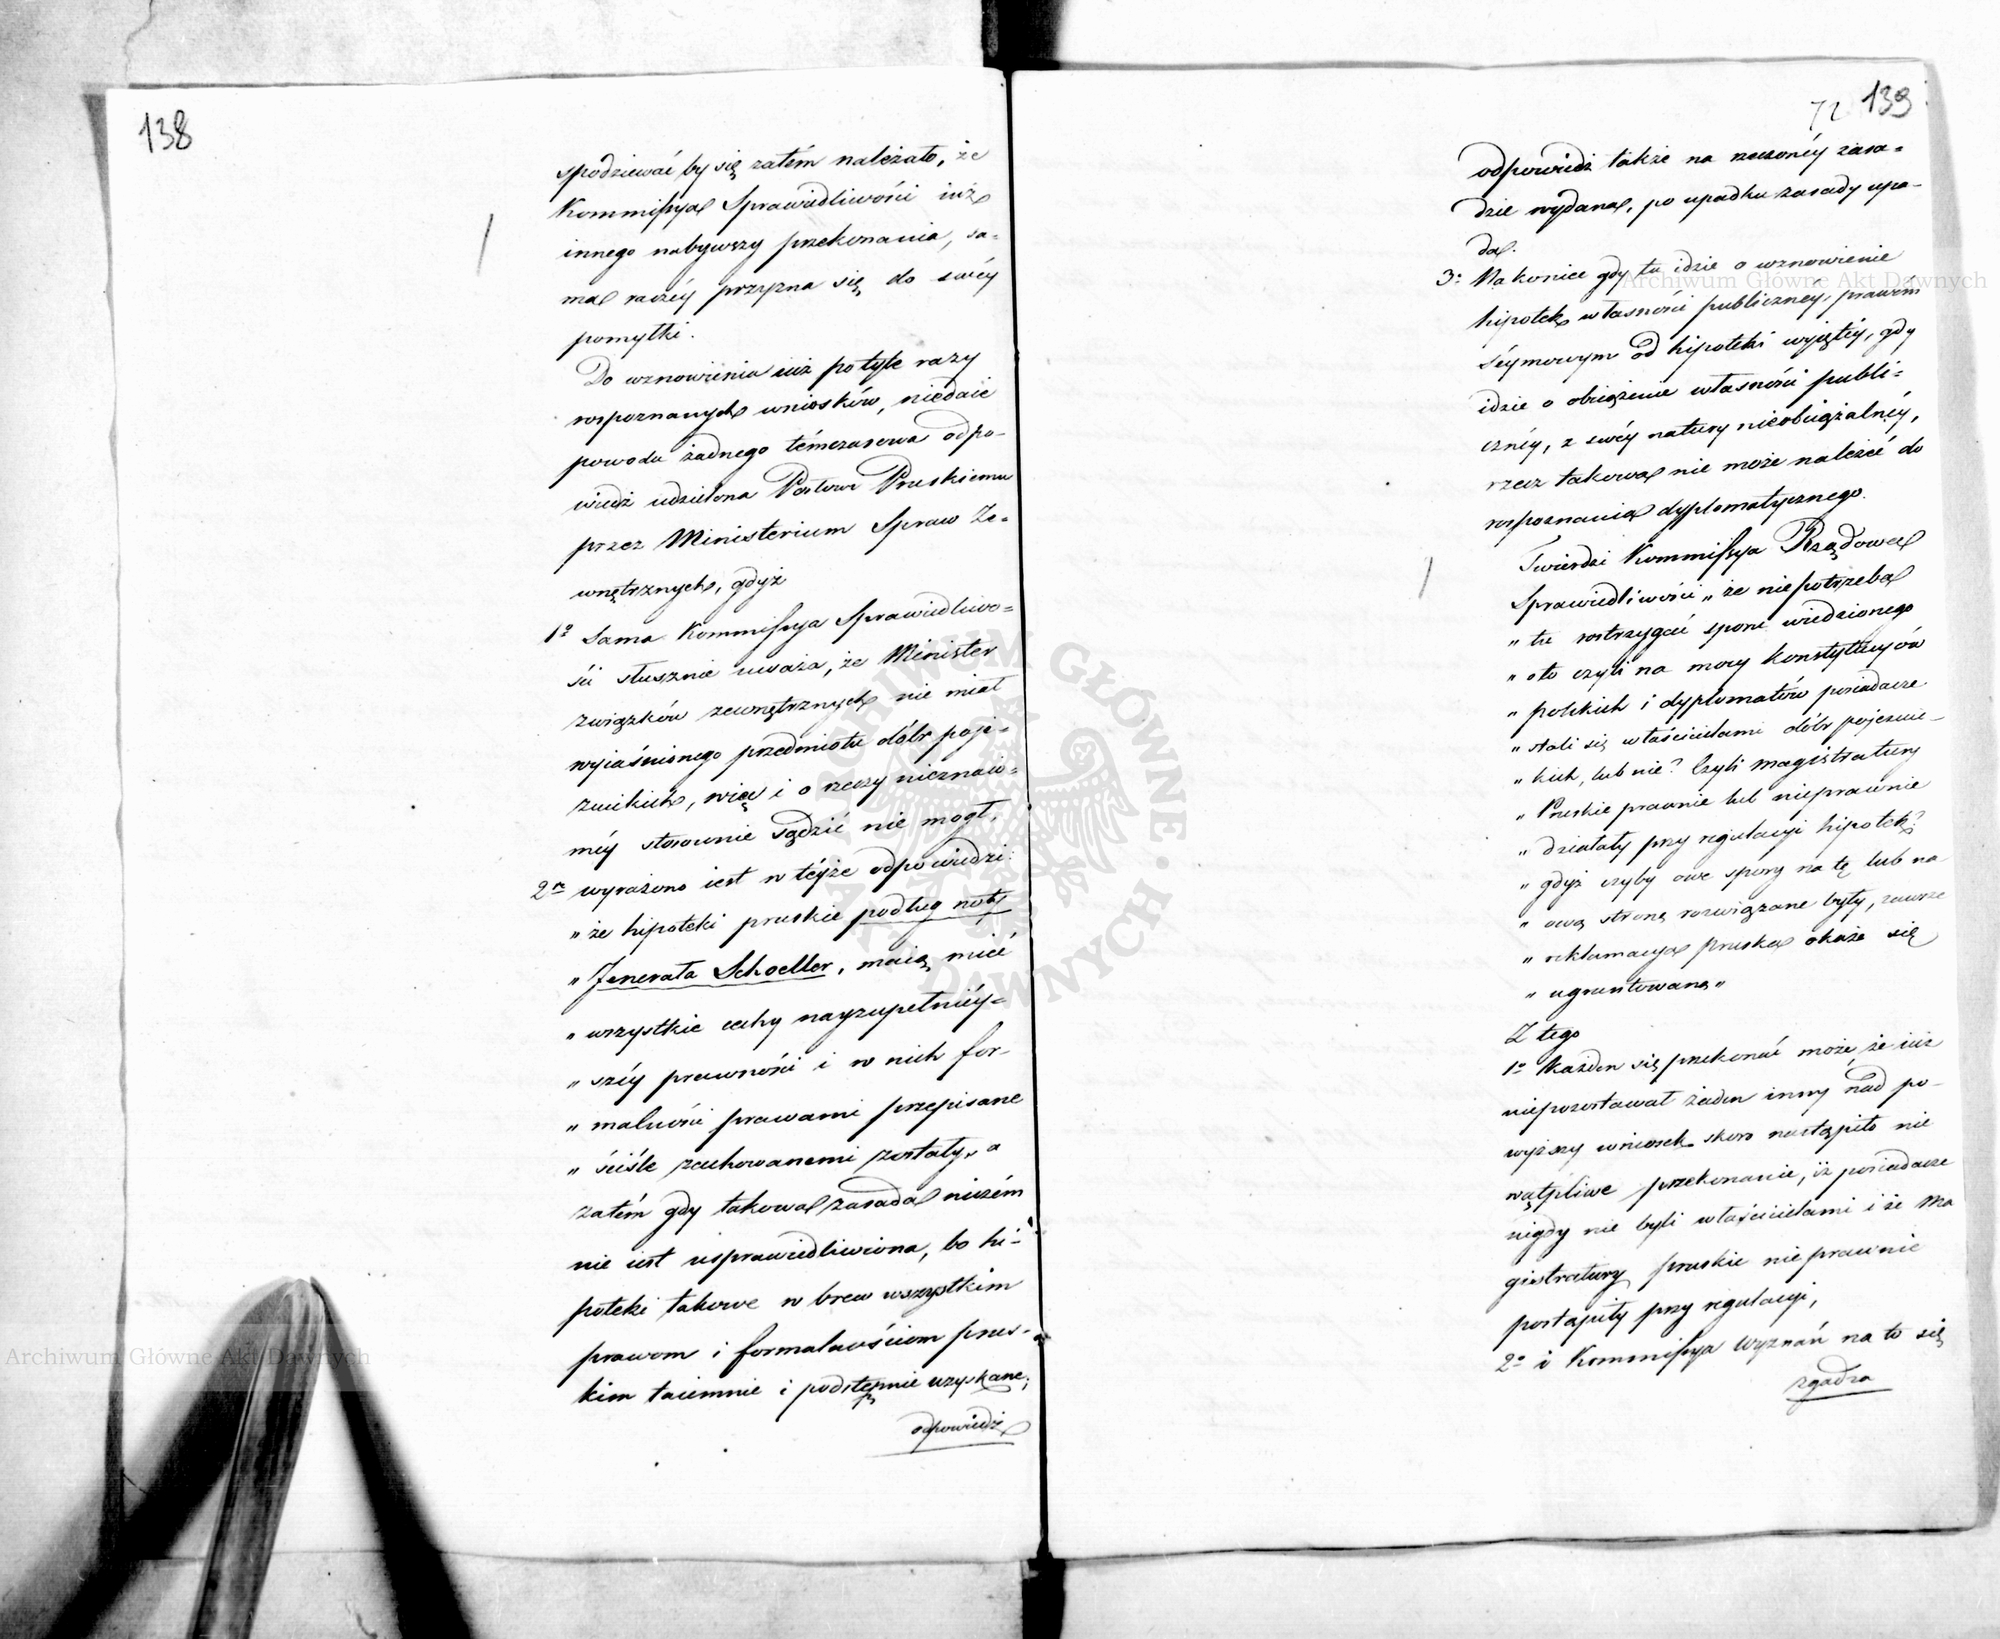 138
spodziewać by się zatém należało, że
Kommissya Sprawiedliwości iuż
innego nabywszy przekonania, sa-
ma raczéy przyzna się do swéy
pomyłki.
Do wznowienia iuż po tyle razy
rospoznanych wniosków, niedaie
powodu żadnego témczasowa odpo-
wiedź udzielona Posłowi Pruskiemu
przez Ministerium Spraw Ze-
wnętrznych, gdyż
1º Sama Kommissya Sprawiedliwo=
ści słusznie uważa, że Minister
związków zewnętrznych nie miał
wyiaśnionego przedmiotu dóbr poje-
zuickich, więc i o rzeczy nieznaio-
méy stosownie sądzić nie mógł,
2re wyrażono iest w téyże odpowiedzi:
„ że hipoteki pruskie podług noty
„ Jenerała Schoeller, maią mieć
„ wszystkie cechy nayzupełniéy-
„ széy prawności i w nich for-
„ malności prawami przepisane
„ ściśle zachowanemi zostały„ a
zatém gdy takowa zasada niczém
nie iest usprawiedliwiona, bo hi-
poteki takowe w brew wszystkim
prawom i formalnościom prus-
kim taiemnie i podstępnie uzyskane;
odpowiedź
72 139
odpowiedź także na rzeczonéy zasa=
dzie wydana, po upadku zasady upa-
da.
3º Nakoniec gdy tu idzie o wznowienie
hipotek własności publicznéy, prawem
Séymowym od hipoteki wyjętéy, gdy
idzie o obciążenie własności publi=
cznéy, z swéy natury nieobciążalnéy,
rzecz takowa nie może należéć do
rospoznania dyplomatycznego.
Twierdzi Kommissya Rządowa
Sprawiedliwości „ że niepotrzeba
„ tu rostrzygać sporu wiedzionego
„ o to czyli na mocy konstytucyów
„ polskich i dyplomatów posiadacze
„ stali się właścicielami dóbr pojezuic-
„ kich, lub nie? Czyli magistratury
„ Pruskie prawnie lub nieprawnie
„ działały przy regulacyi hipotek?
„ gdyż czyby owe spory na tę lub na
„ ową stronę rozwiązane były, zawsze
„ reklamacya pruska okaże się
„ ugruntowaną„
Z tego
1º Każden się przekonać może, że iuż
niepozostawał żaden inny nad po-
wyższy wniosek skoro nastąpiło nie
wątpliwe przekonanie, iż posiadacze
nigdy nie byli właścicielami i że Ma
gistratury pruskie nieprawnie
postąpiły przy regulacyi,
2º i Kommissya Wyznań na to się
zgadza
Archiwum Główne Akt Dawnych
Archiwum Główne Akt Dawnych
ARCHIWUM GŁÓWNE AKT DAWNYCH